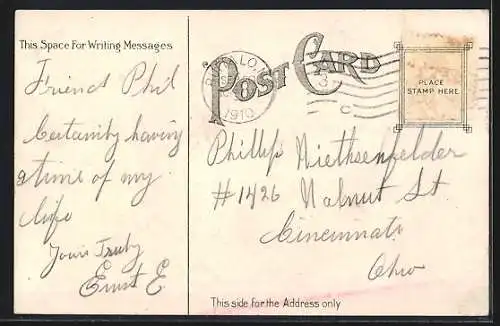 This Space For Writing Messages
POST CARD
BUFFALO
1910
PLACE
STAMP HERE
Friend Phil
Certainity having
a time of my
life
Yours Truly
Ernst E
Phillip Niethsenfelder
#1426 Walnut St
Cincinnati
Ohio
This side for the Address only